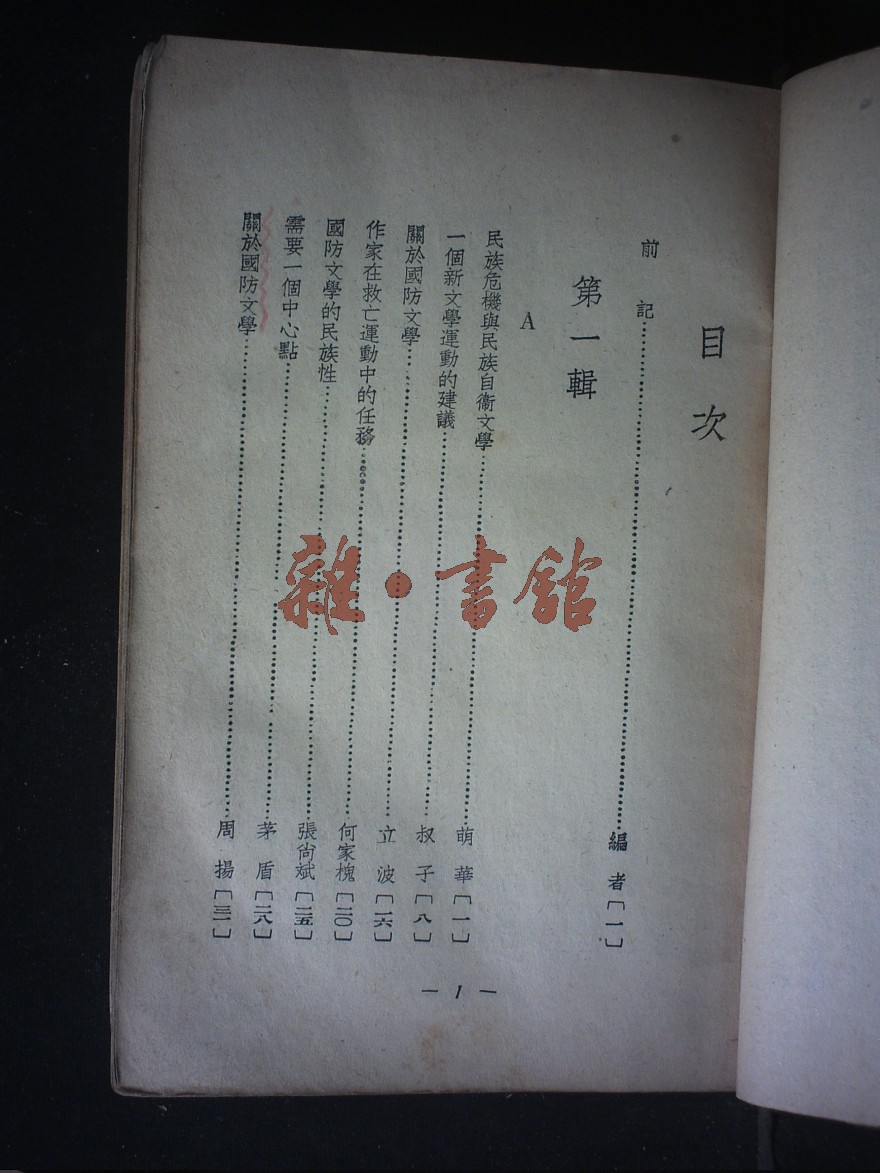 目次
前記……編者〔一〕
第一輯
A
民族危機與民族自衞文學……萌華〔一〕
一個新文學運動的建議……叔子〔八〕
關於國防文學……立波〔一六〕
作家在救亡運動中的任務……何家槐〔二〇〕
國防文學的民族性……張尙斌〔二五〕
需要一個中心點……茅盾〔二八〕
關於國防文學……周揚〔三一〕
— 1 —
雜·書館